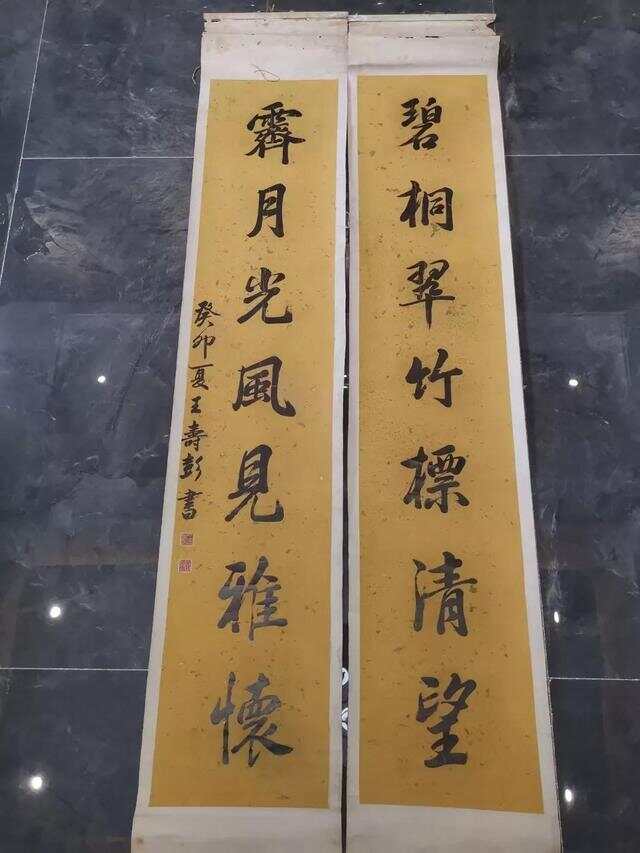 碧桐翠竹標清望
霽月光風見雅懷
癸卯夏王壽彭書